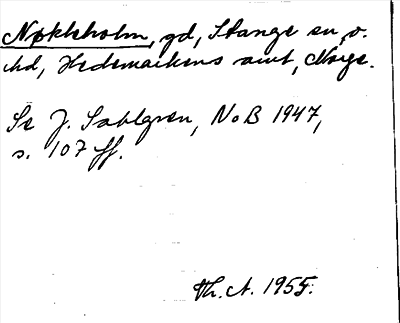 Nøkleholm, gd, Stange sn, v.
hd, Hedemarkens amt, Norge.
Se J. Sahlgren, NoB 1947,
s. 107 ff.
Th. A. 1955.